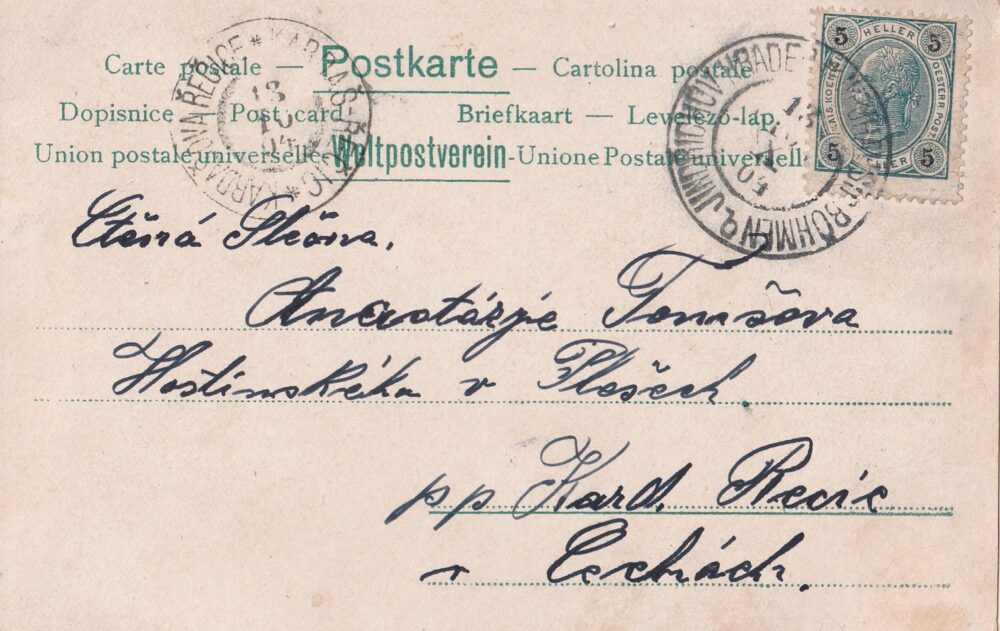 Carte postale — Postkarte — Cartolina postale
Dopisnice — Post card Briefkaart — Levelező-lap.
Union postale universelle-Weltpostverein-Unione Postale universelle
KARDAŠOVA ŘEČICE * KARDAŠ-ŘEČIC *
13
10
04
JINDŘICHŮV HRADEC
BÖHMEN
13
04
5 HELLER 5
5 5
Ctěná Slečna,
Anastázje Tomšova
Hostinského v Plešech
pp Kard. Recic
v Cechách.